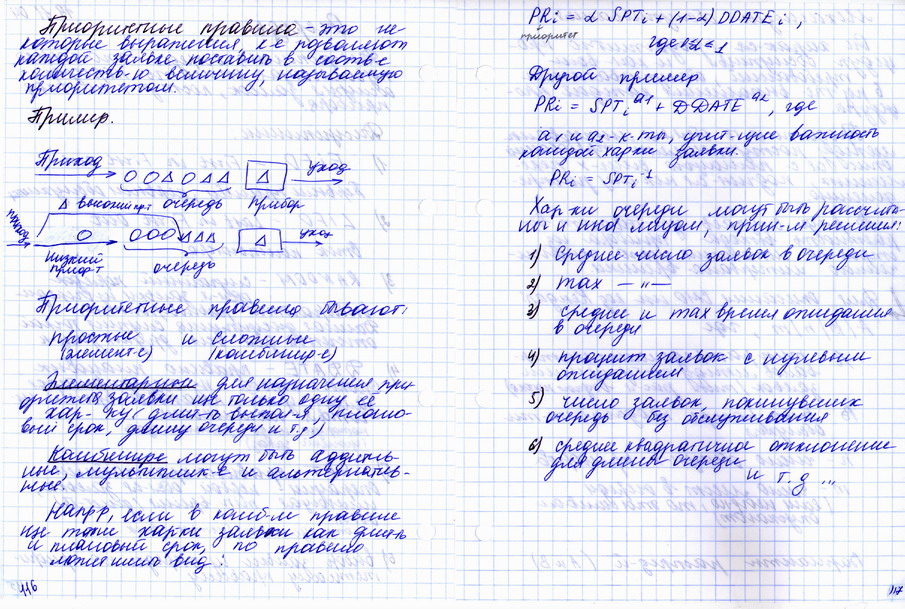 Приоритетные правила - это не
которые выражения, к-е подволяют
каждой заявке поставить в соотв-е
количеств-ю величину, называемую
приоритетом.
Пример.
Приход
уход
△ высокий пр-т очередь прибор
приход
уход
низкий
приор-т
очередь
Приоритетные правила бывают:
простые и сложные
(элемент-е) (комбинир-е)
Элементарные для назначения при-
оритета заявки исп только одну её
хар-ку (длит-ть выпол-я, плано-
вый срок, длину очереди и т.д.)
Комбинир могут быть аддитив-
ные, мультиплик-е и альтернатив-
ные.
Напр, если в комб-м правиле
исп такие харки заявки как длит-ть
и плановый срок, то правило
может иметь вид:
116
PRi = α SPTi + (1-α) DDATEi,
приоритет
где 0≤α≤1
Другой пример
PRi = SPTi^a1 + DDATE^a2, где
a1 и a2 - к-ты, учит-щие важность
каждой харки заявки.
PRi = SPTi^-1
Хар-ки очереди могут быть рассчит-
ны и
1) Среднее число заявок в очереди
2) max — " —
3) среднее и max время ожидания
в очереди
4) процент заявок с нулевым
ожиданием
5) число заявок, покинувших
очередь без обслуживания
6) среднее квадратичное отклонение
для длины очереди
и т.д ...
117